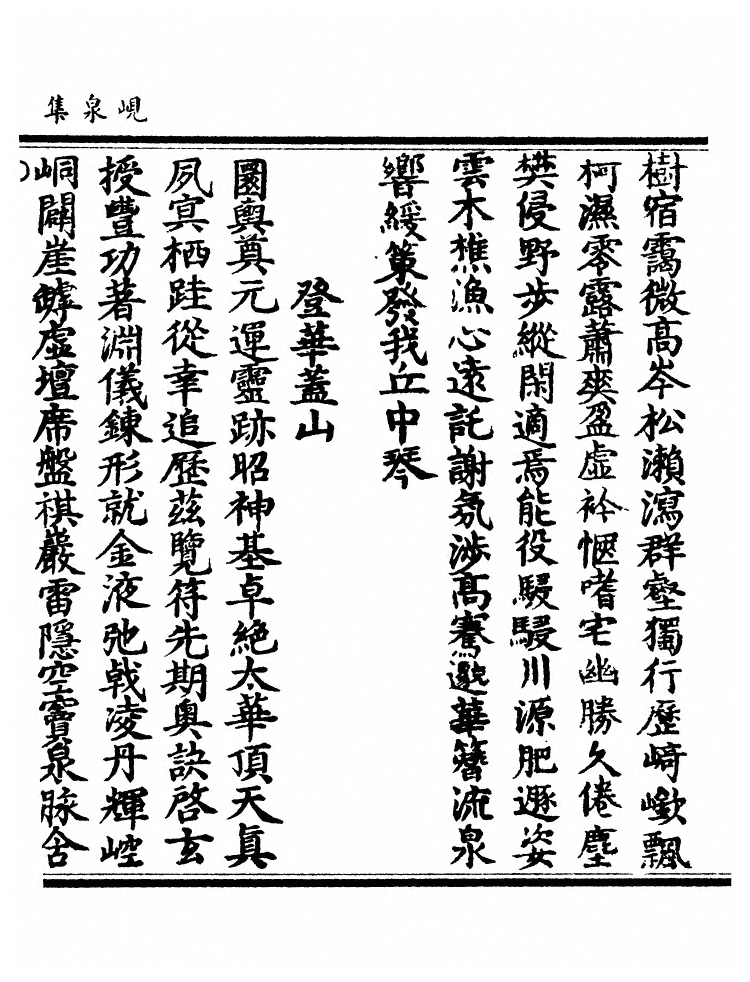 峴泉集
樹宿靄微高岑松瀨瀉群壑獨行歷崎嶔飄
柯濕零露蕭爽盈虛衿愜嗜宅幽勝久倦塵
樊侵野步縱閑適焉能役駸駸川源肥遯姿
雲木樵漁心遠託謝氛涉高騫邈華簪流泉
響緩策發我丘中琴
登華蓋山
圜輿奠元運靈跡昭神基卓絕太華頂天真
夙冥栖跬從幸追歷茲覽符先期奧訣啓玄
授豐功著淵儀鍊形就金液弛戟凌丹輝崆
峒闢崖罅虛壇席盤祺巖雷隱空竇泉脉含